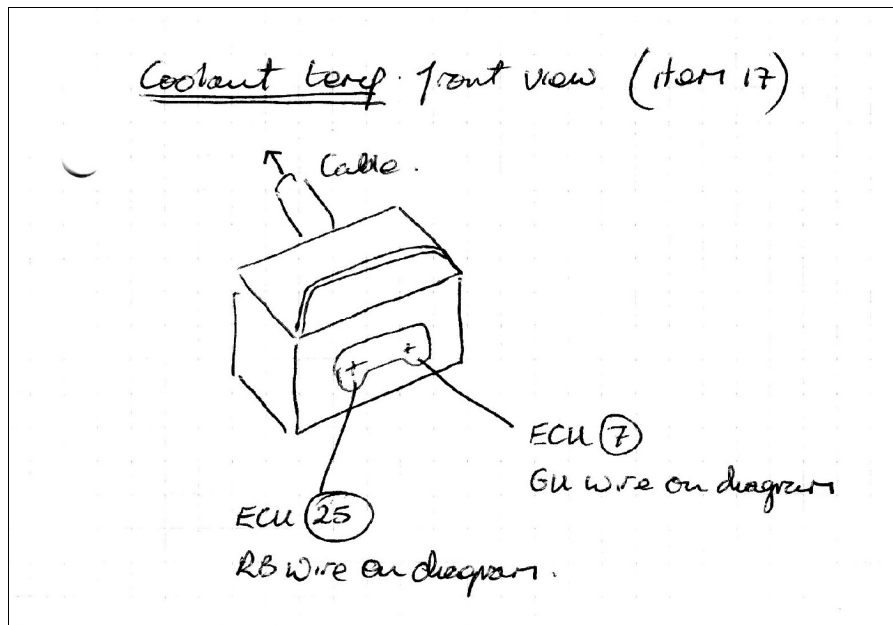 Coolant temp. front view (item 17)
Cable.
ECU 7
GU wire on diagram
ECU 25
RB wire on diagram.